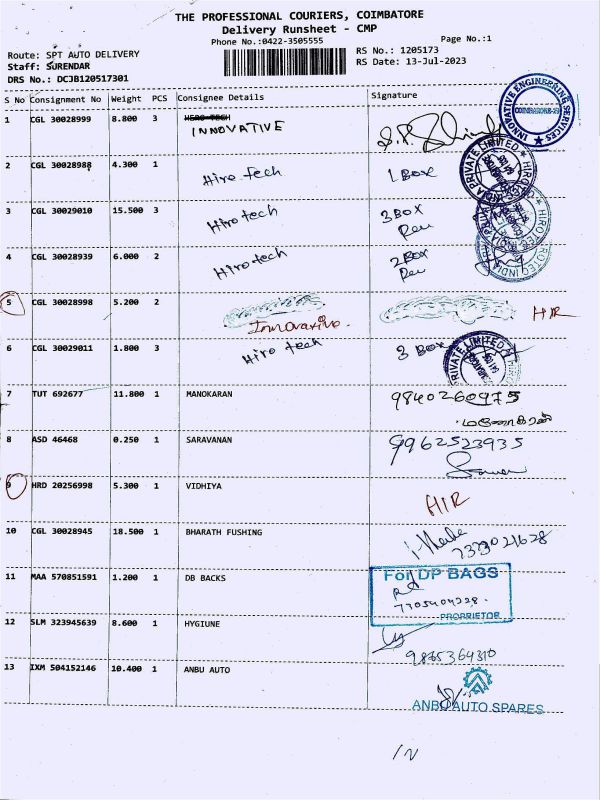 THE PROFESSIONAL COURIERS, COIMBATORE
Delivery Runsheet - CMP
Phone No.:0422-3505555
Page No.:1
Route: SPT AUTO DELIVERY
RS No.: 1205173
Staff: SURENDAR
RS Date: 13-Jul-2023
DRS No.: DCJB120517301
S No Consignment No Weight PCS Consignee Details Signature
1 CGL 30028999 8.800 3 HERO TECH
INNOVATIVE
INNOVATIVE ENGINEERING SERVICES
2 CGL 30028988 4.300 1 Hiro tech 1 Box
PRIVATE LIMITED HIROTEC INDIA
3 CGL 30029010 15.500 3 Hiro tech 3 Box
HIROTEC INDIA
4 CGL 30028939 6.000 2 Hiro tech 2 Box
5 CGL 30028998 5.200 2 Innovative. HIR
6 CGL 30029011 1.800 3 Hiro tech 3 Box
PRIVATE LIMITED
7 TUT 692677 11.800 1 MANOKARAN 9840260975
மனோகரன்
8 ASD 46468 0.250 1 SARAVANAN 9962523935
9 HRD 20256998 5.300 1 VIDHIYA HIR
10 CGL 30028945 18.500 1 BHARATH FUSHING 7373021628
11 MAA 570851591 1.200 1 DB BACKS For DP BAGS
PROPRIETOR
12 SLM 323945639 8.600 1 HYGIUNE
13 IXM 504152146 10.400 1 ANBU AUTO
ANBU AUTO SPARES